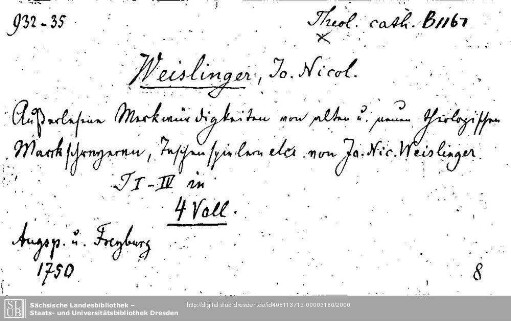 932-35
Theol. cath. B1161
Weislinger, Jo. Nicol.
Außerlesene Merkwürdigkeiten von alten u. neuen theologischen
Marckschreyeren, Taschenspielern etc. von Jo. Nic. Weislinger.
T I-IV in
4 Voll.
Augsp. u. Freyburg
1750
8
SLUB
Sächsische Landesbibliothek –
Staats- und Universitätsbibliothek Dresden